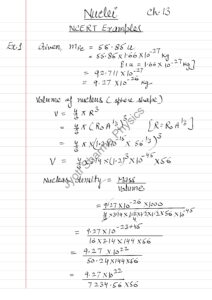 Nuclei Ch-13
NCERT Examples
Ex.1 Given, mFe = 55.85 u
= 55.85 × 1.66 × 10^-27 kg
[1 u = 1.66 × 10^-27 kg]
= 92.711 × 10^-27
= 9.27 × 10^-26 kg
Volume of nucleus (sphere shape)
V = 4/3 π R³
= 4/3 π (R₀ A^1/3)³ [R = R₀ A^1/3]
V = 4/3 × 3.14 (1.2)³ × 10^-45 × 56
Nuclear density = Mass / Volume
= 9.27 × 10^-23+45
16 × 3.14 × 144 × 56
= 9.27 × 10^22
50.24 × 144 × 56
= 9.27 × 10^22
7234.56 × 56
Physics